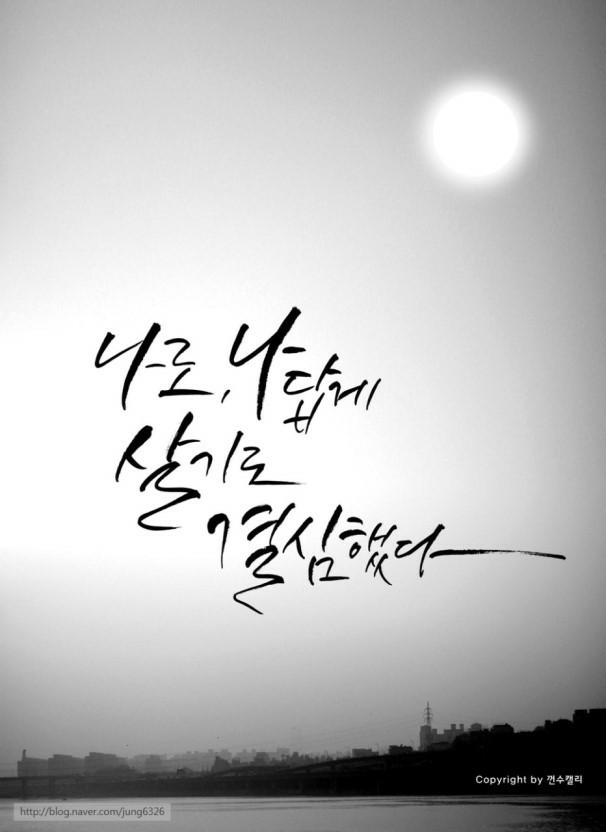 나로, 나답게
살기로
결심했다
Copyright by 껀수캘리
http://blog.naver.com/jung6326